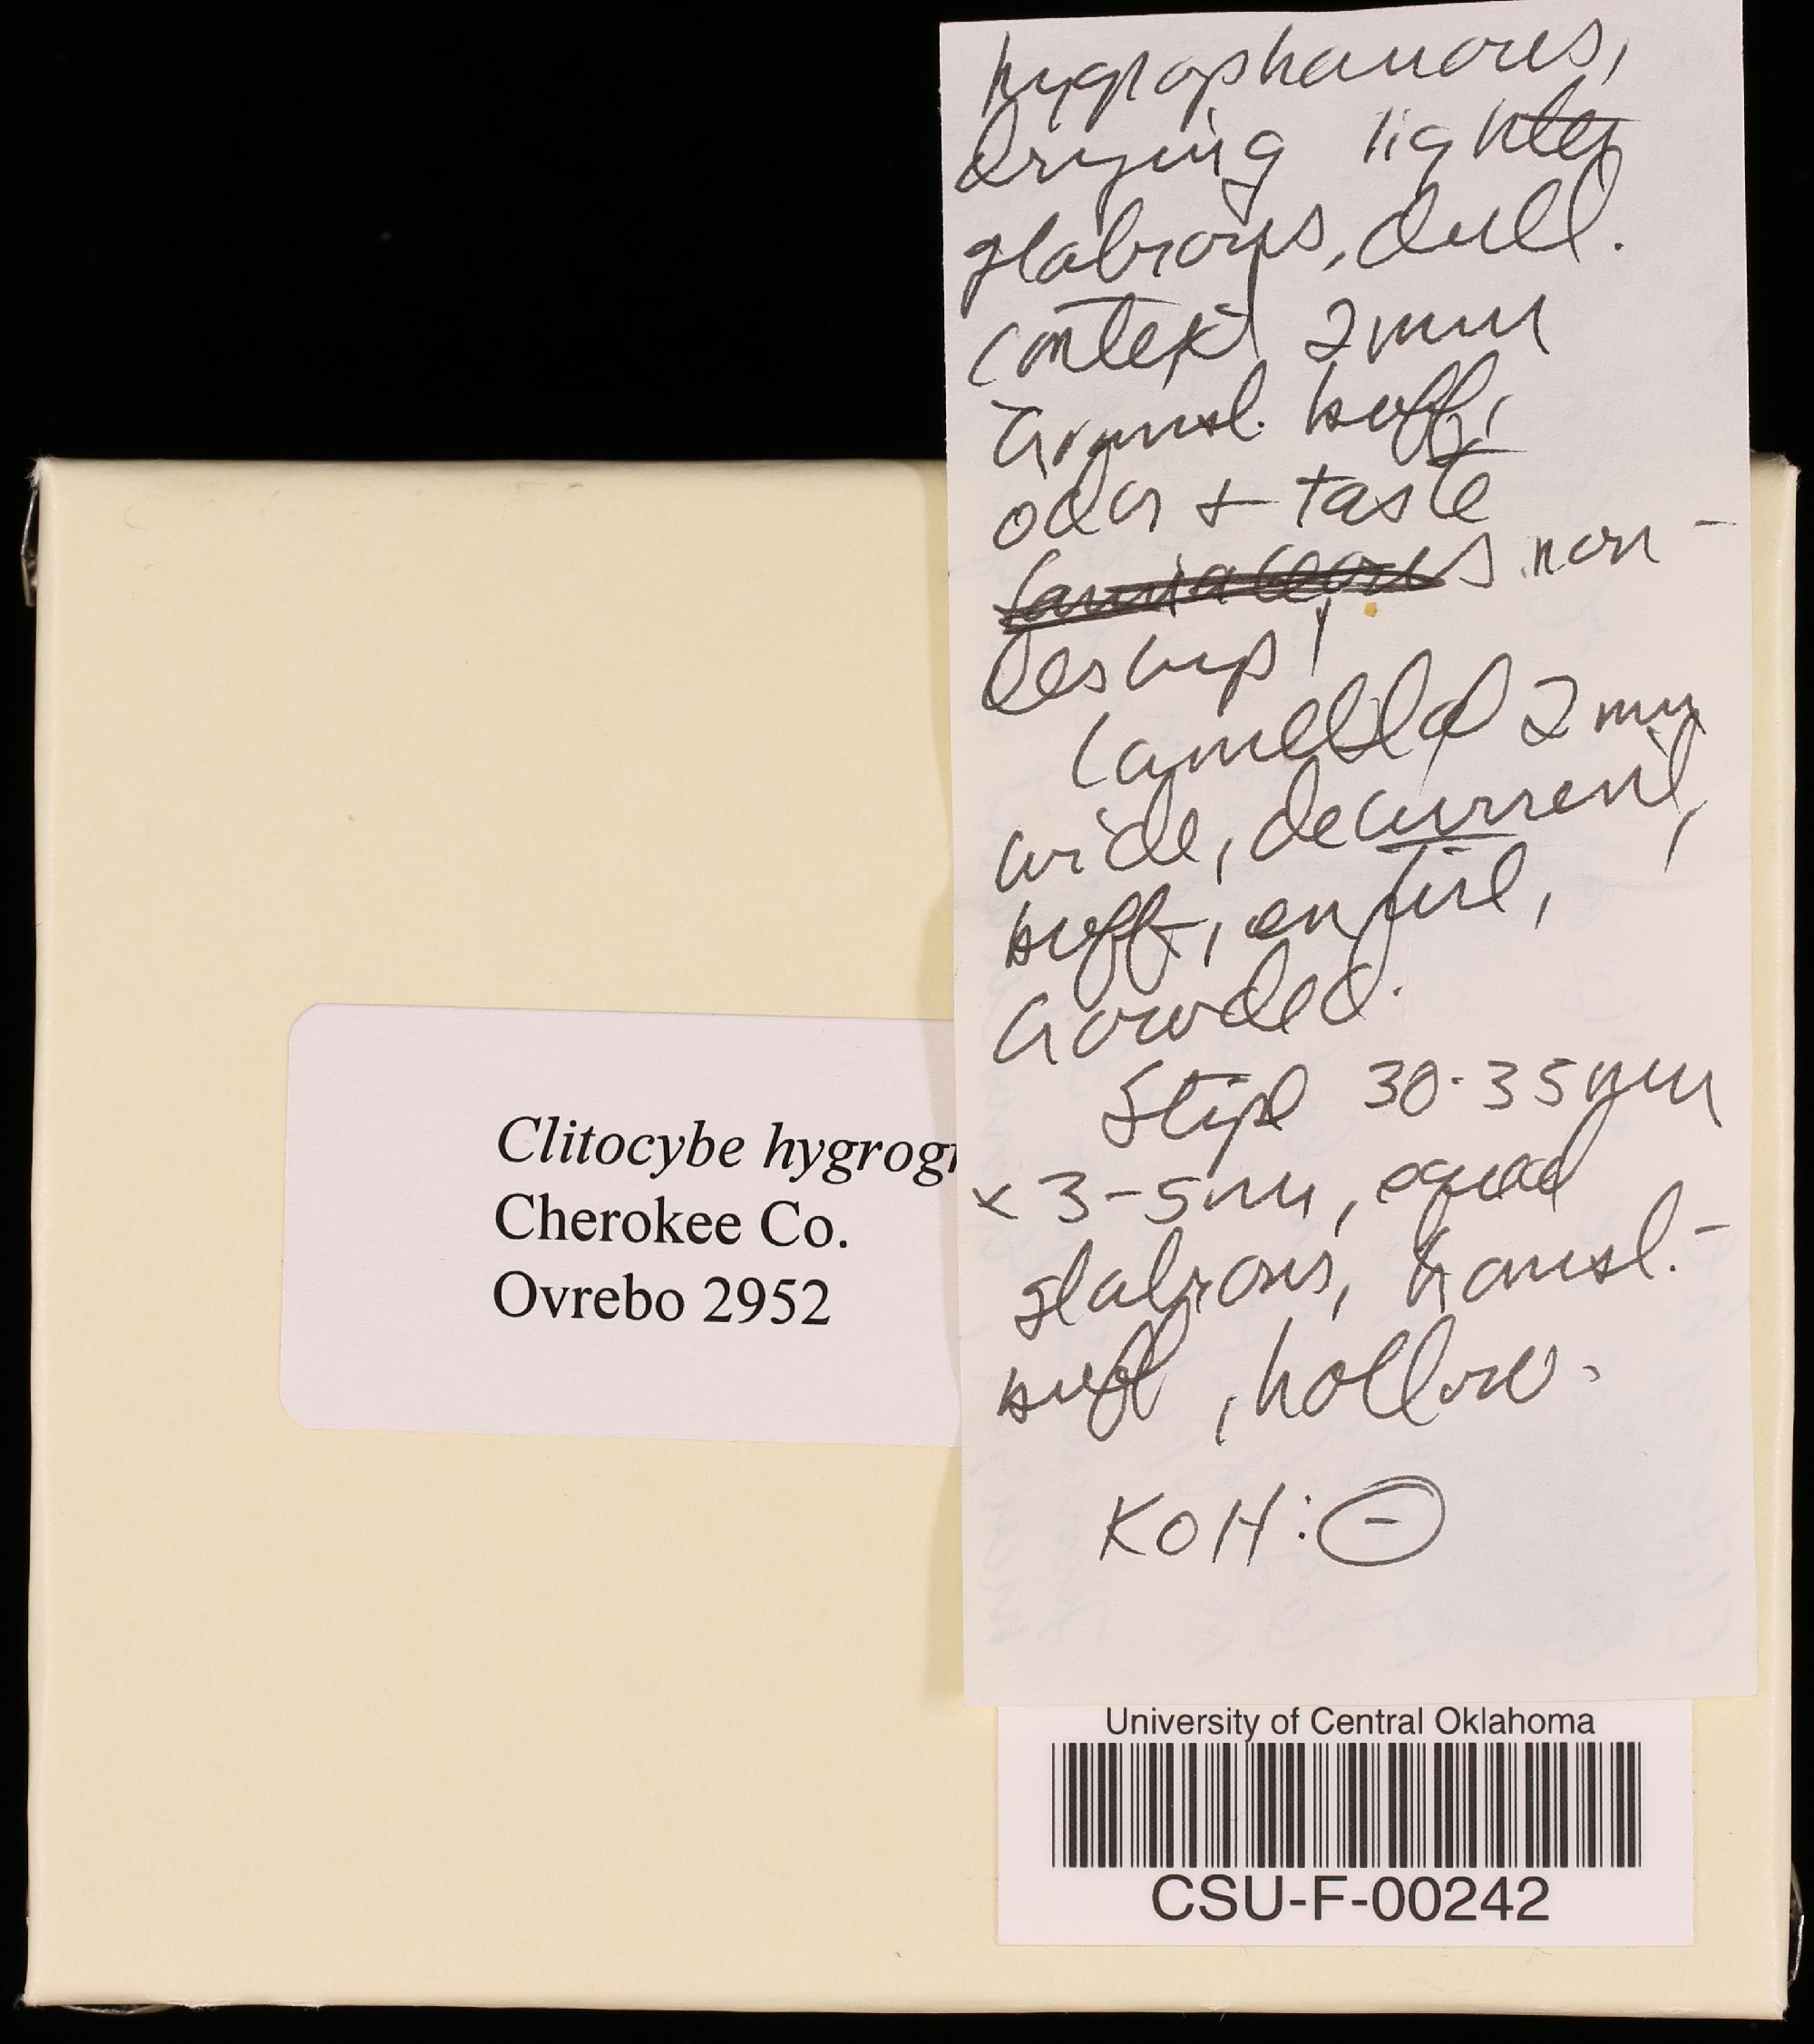 hygrophanous,
drying lighter
glabrous, dull.
context 2mm
transl. buff,
odor + taste
farinaceous non-
descript
Lamellae 2mm
wide, decurrent,
buff, entire,
crowded.
Stipe 30-35mm
x 3-5mm, equal
glabrous, transl.-
buff, hollow.
KOH: -
Clitocybe hygrogr
Cherokee Co.
Ovrebo 2952
University of Central Oklahoma
CSU-F-00242